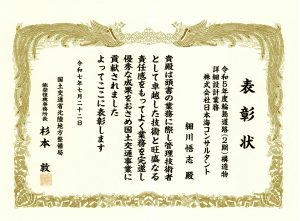 表彰状
令和5年度輪島道路(Ⅱ期)構造物
詳細設計業務
株式会社日本海コンサルタント
細川悟志 殿
貴殿は頭書の業務に際し管理技術者
として卓越した技術と旺盛なる
責任感をもってよく業務を完遂し
優秀な成果をおさめ国土交通事業に
貢献されました
よってここに表彰します
令和七年七月二十二日
国土交通省北陸地方整備局
能登復興事務所長
杉本 敦